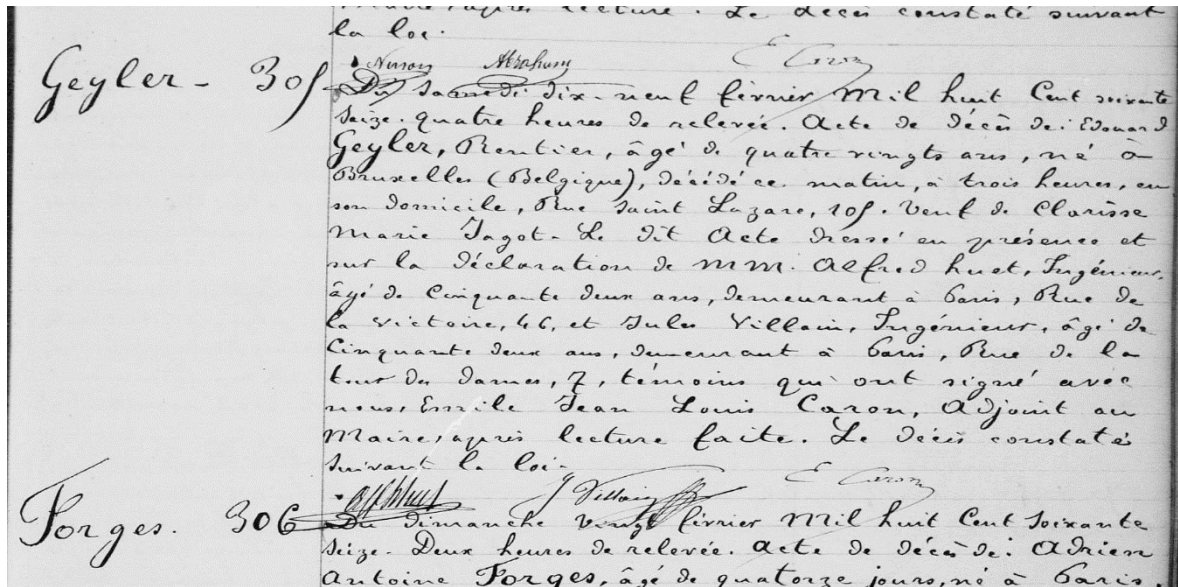 Maire, après lecture. Le décès constaté suivant
la loi.
Nerson Abraham E Caron
Geyler - 305
Du samedi dix-neuf février Mil huit Cent soixante
seize. quatre heures de relevée. Acte de décès de: Edouard
Geyler, Rentier, âgé de quatre vingts ans, né à
Bruxelles (Belgique), décédé ce matin, à trois heures, en
son domicile, Rue Saint Lazare, 105. Veuf de Clarisse
Marie Jagot. Le dit Acte dressé en présence et
sur la déclaration de MM. Alfred huet, Ingénieur,
âgé de Cinquante deux ans, demeurant à Paris, Rue de
la victoire, 46, et Jules Villain, Ingénieur, âgé de
Cinquante deux ans, demeurant à Paris, Rue de la
tour des dames, 7, témoins qui ont signé avec
nous, Emile Jean Louis Caron, Adjoint au
Maire, après lecture faite. Le décès constaté
suivant la loi.
J Villain E Caron
Forges. 306
Du dimanche vingt février Mil huit Cent soixante
seize. Deux heures de relevée. Acte de décès de: Adrien
Antoine Forges, âgé de quatorze jours, né à Paris